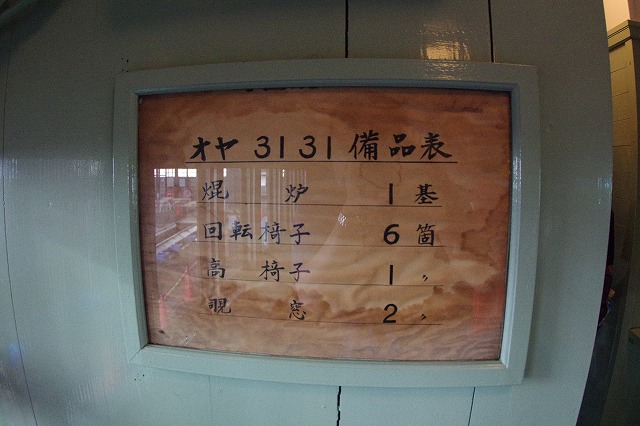 オヤ 31 31 備品表
焜炉 1 基
回転椅子 6 箇
高椅子 1 〃
覗窓 2 〃